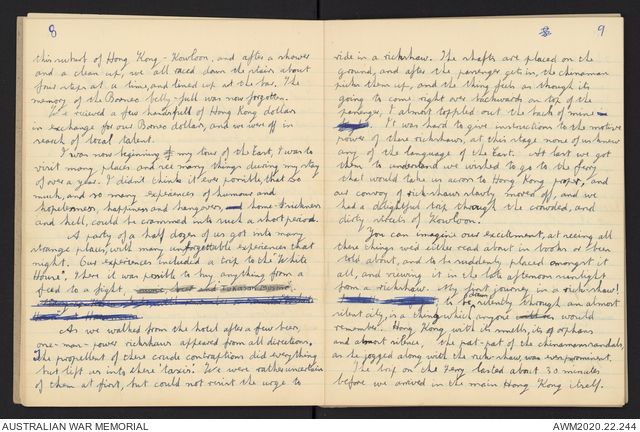 8
this suburb of Hong Kong - Kowloon, and after a shower
and a clean up, we all raced down the stairs about
four steps at a time, and lined up at the bar. The
memory of the Borneo belly-full was now forgotten.
We received a few handsfull of Hong Kong dollars
in exchange for our Borneo dollars, and we were off in
search of local talent.
I was now beginning my tour of the East, I was to
visit many places and see many things during my stay
of over a year. I didn't think it ever possible, that so
much, and so many experiences of humour and
hopelessness, happiness and hangover, and home-sickness
and hell, could be crammed into such a short period.
A party of a half dozen of us got into many
strange places, with many unforgettable experiences that
night. Our experiences included a trip to the "White
House". Here it was posible to buy anything from a
feed to a fight,
As we walked from the hotel after a few beers,
one-man-power rickshaws appeared from all directions.
The propellent of these crude contraptions did everything
but lift us into these 'taxis'. We were rather uncertain
of them at first, but could not resist the urge to
9
ride in a rickshaw. The shafts are placed on the
ground, and after the passenger gets in, the chinaman
picks them up, and the thing feels as though its
going to come right over backwards on top of the
passenger, I almost toppled out the back of mine
It was hard to give instructions to the motive
power of these rickshaws, at this stage none of us knew
any of the language of the East. At last we got
them to understand we wished to go to the ferry
that would take us across to Hong Kong proper, and
our convoy of rickshaws slowly moved off, and we
had a delightful trip through the crowded, and
dirty streets of Kowloon.
You can imagine our excitement, at seeing all
these things we'd either read about in books or been
told about, and to be suddenly placed amongst it
all, and viewing it in the late afternoon sunlight
from a rickshaw. My first journey in a rickshaw!
to be silently through an almost
silent city, is a thing which anyone would
remember. Hong Kong with its smells, its orphans
and almost silence, the pat-pat of the chinamans sandals,
as he jogged along with the rickshaw, was ever prominent.
The trip on the Ferry lasted about 30 minutes
before we arrived in the main Hong Kong itself.
AUSTRALIAN WAR MEMORIAL
AWM2020.22.244